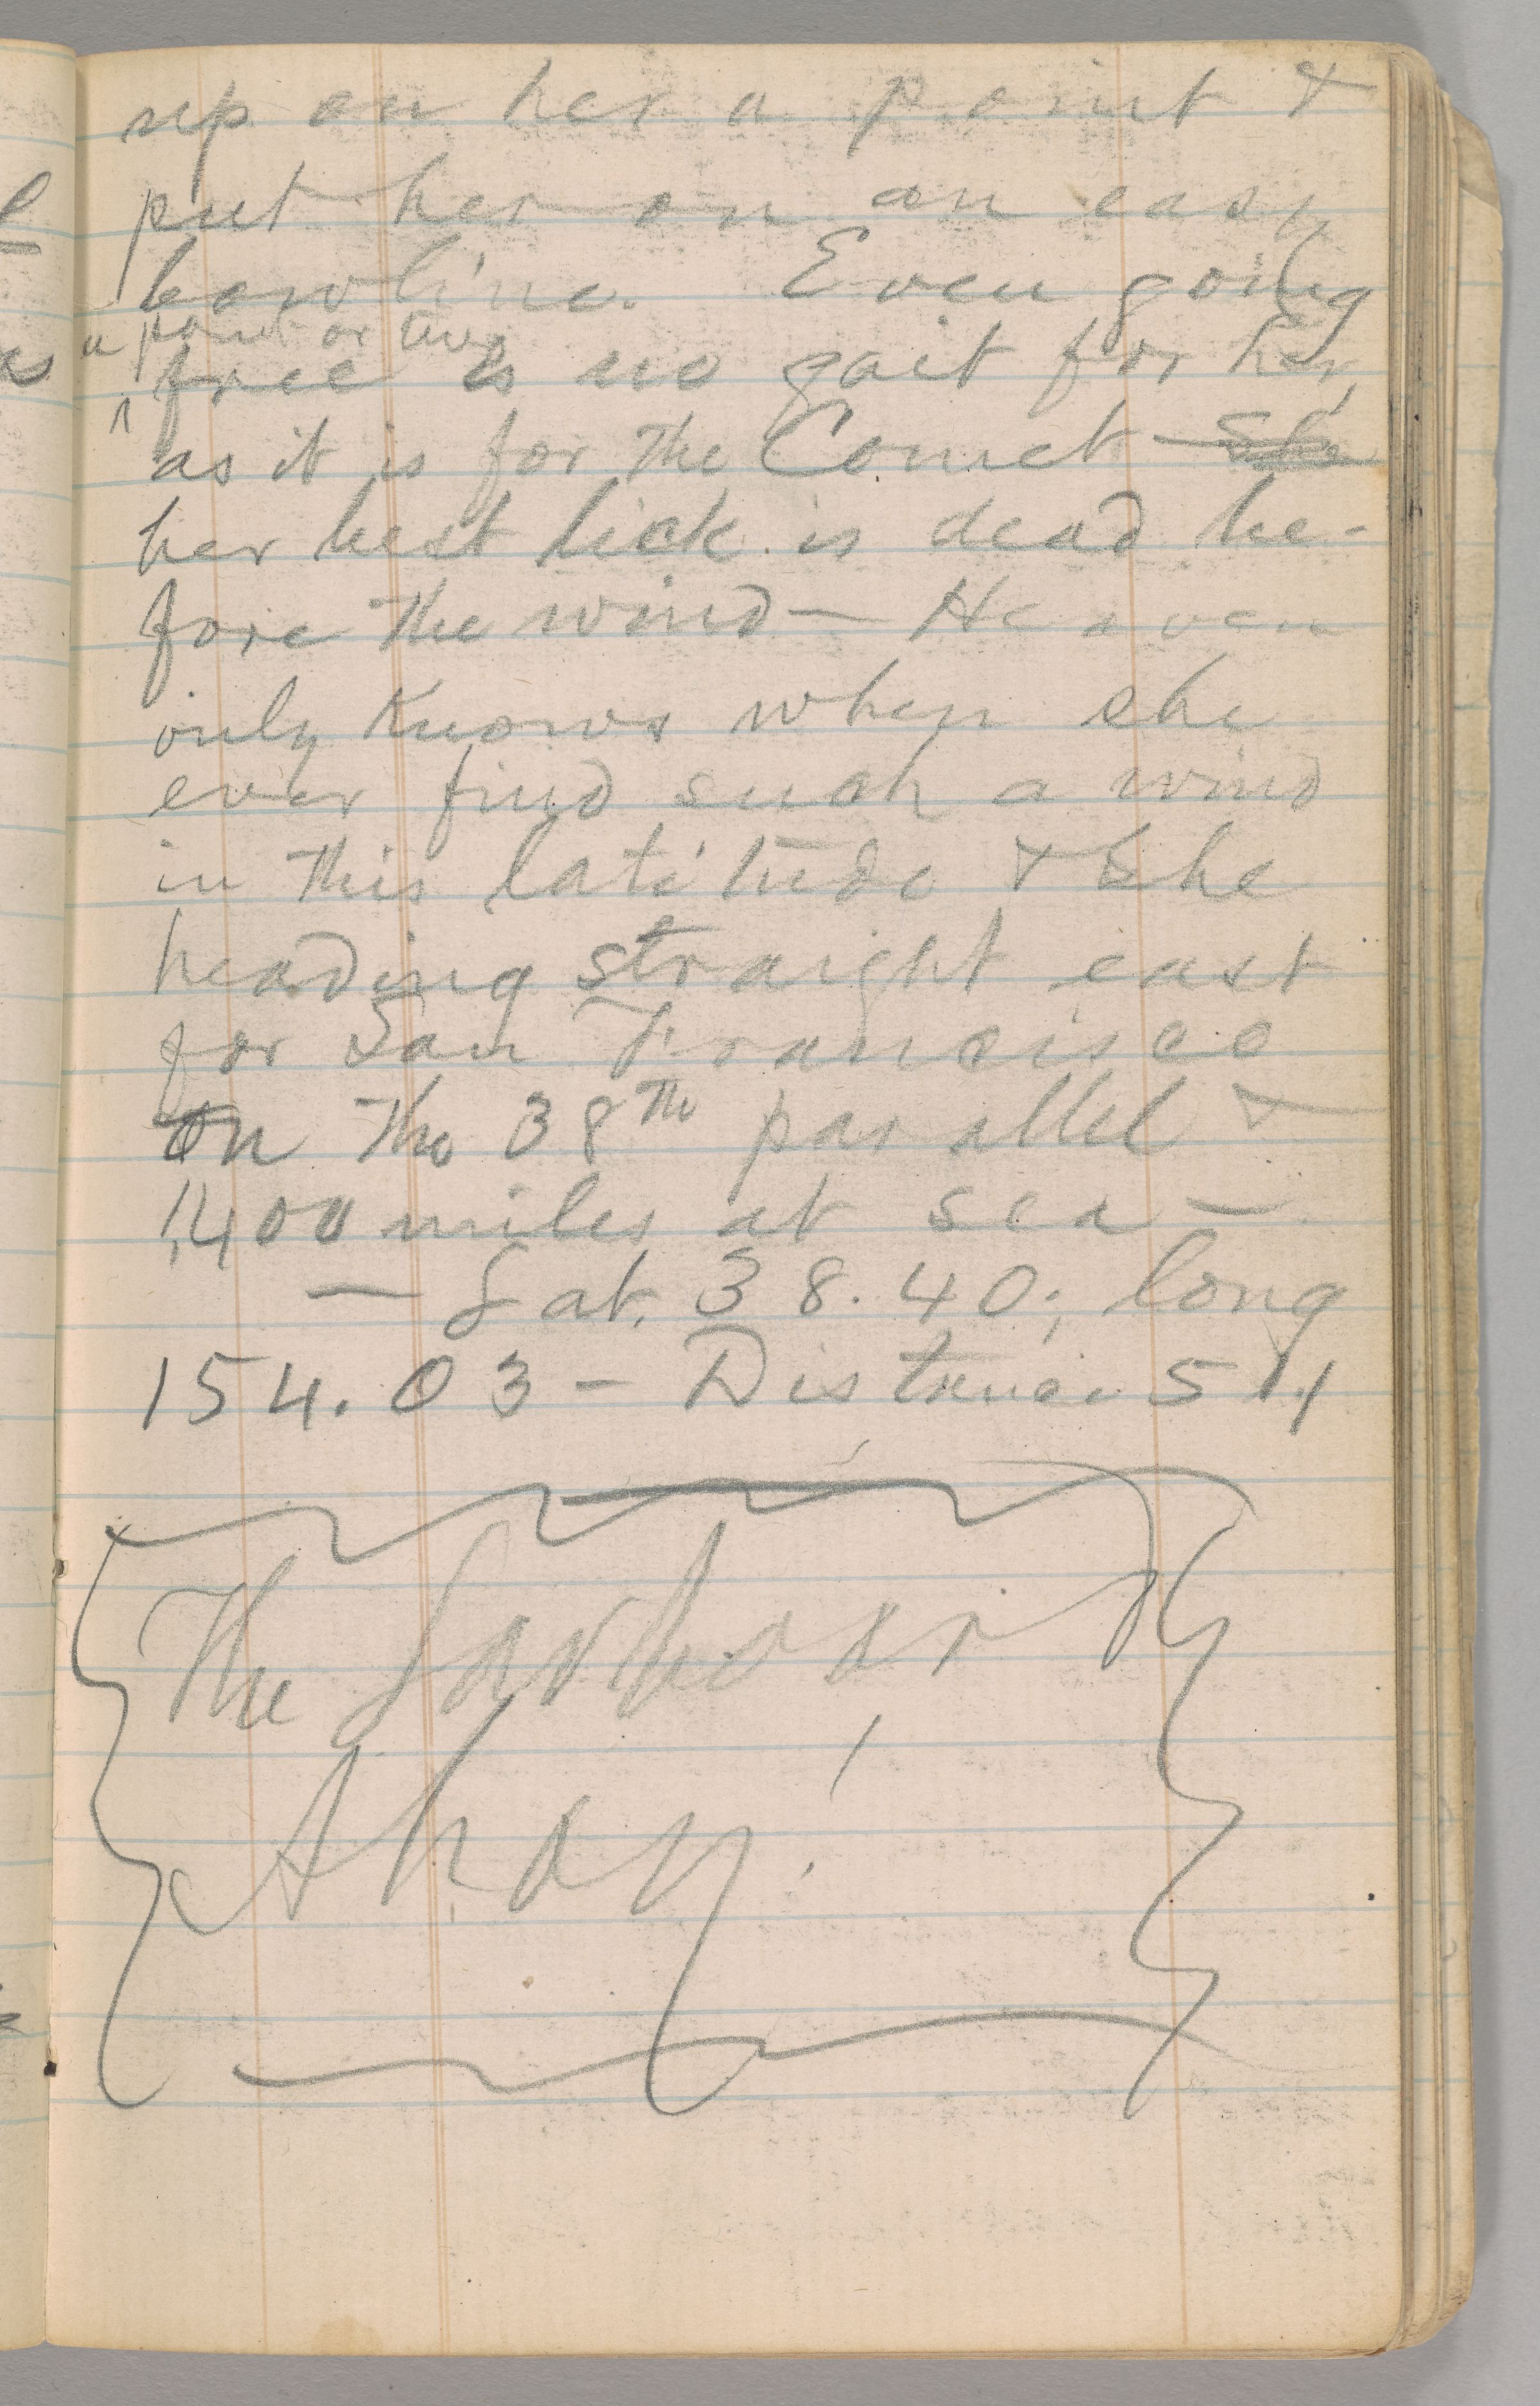 up on her a point &
put her on an easy
bowline. Even going
a point or two
free is no gait for her,
as it is for the Comet— She
her best lick is dead be-
fore the wind— Heaven
only knows when she
ever find such a wind
in this latitude & she
heading straight east
for San Francisco
on the 38th parallel &
1,400 miles at sea—
— Lat. 38.40; long
154.03 - Distance 51.
The Larboard
Ahoy!